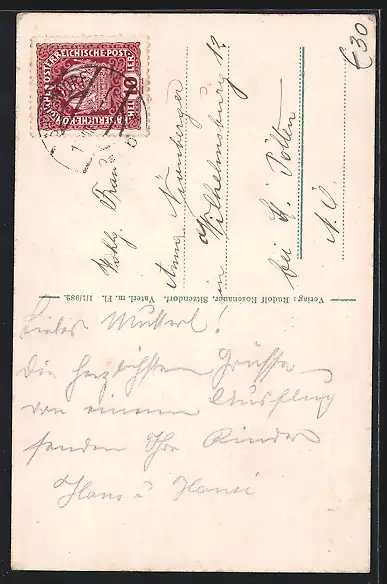 KAISERLICHE KÖNIGLICHE ÖSTERREICHISCHE POST
10 HELLER
€30
Wohlg. Frau
Anna Nürnberger
in Wilhelmsburg 12
bei St. Pölten
N. Ö.
Verlag: Rudolf Rosenauer, Sitzendorf. Vaterl. m. Fl. 1/1/982.
Liebes Mutterl!
Die herzlichsten Grüsse
von einem Ausflug
senden Ihre Kinder
Hans u Hansi